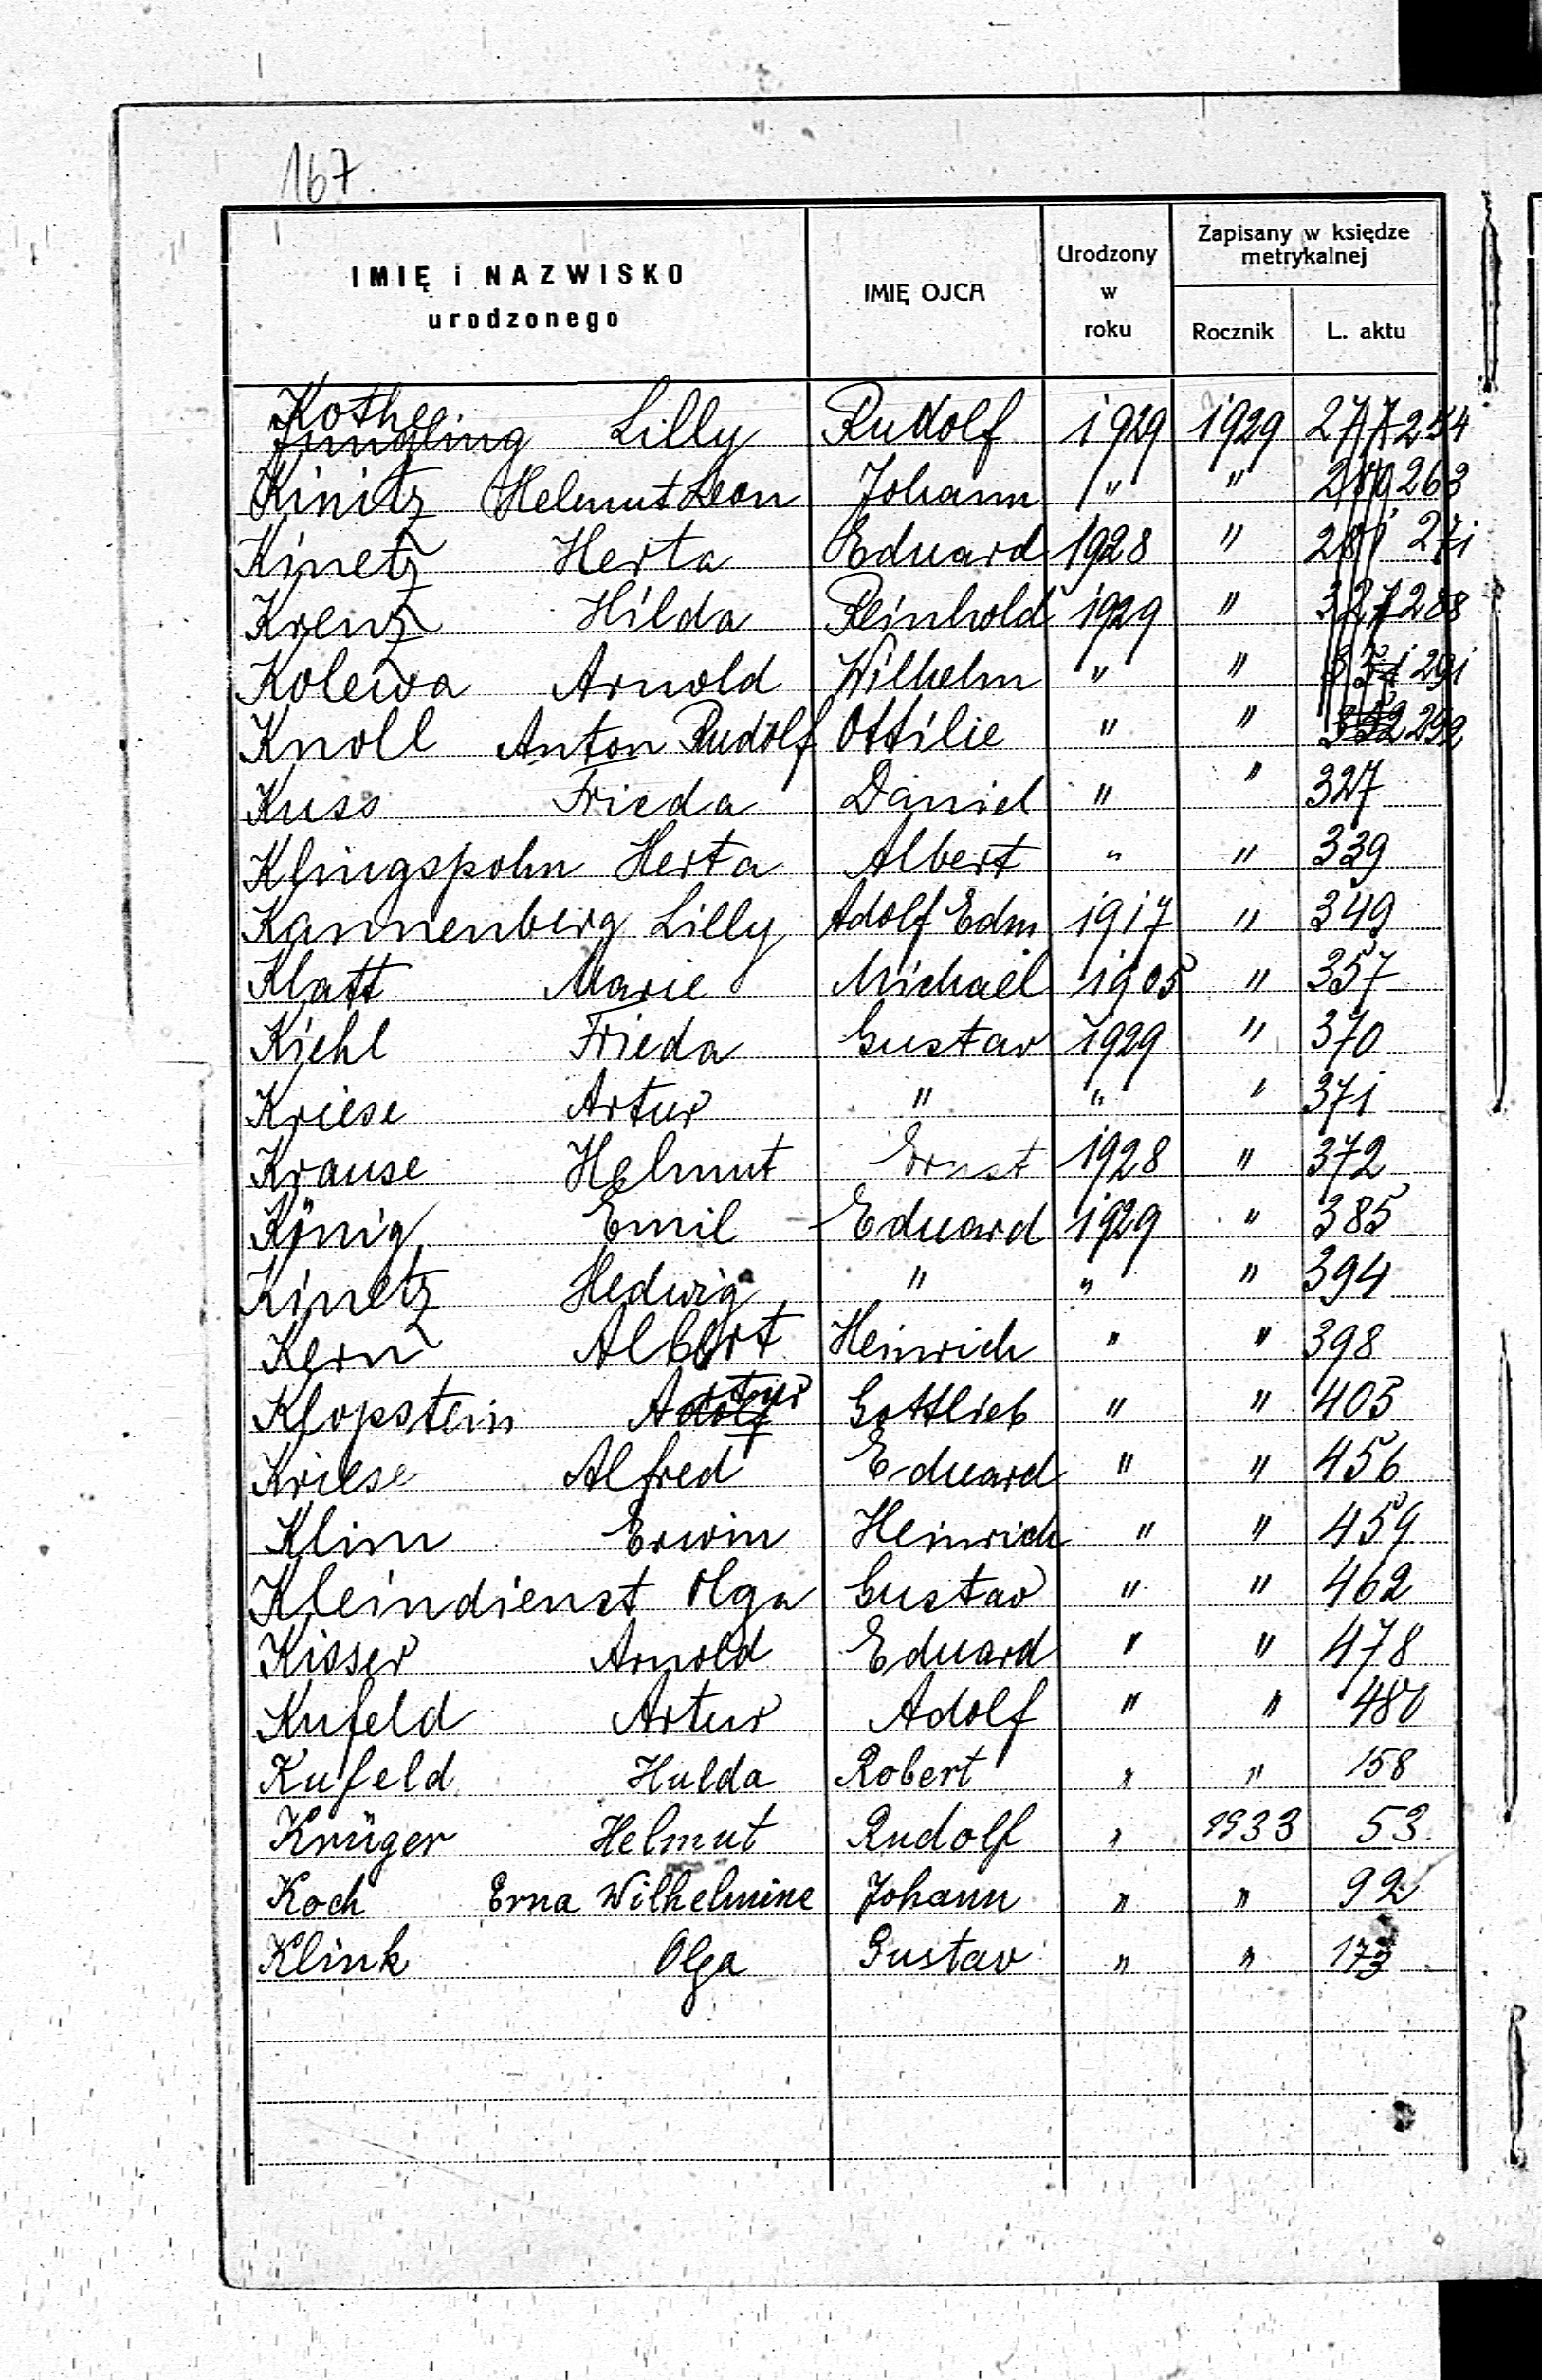 167.
IMIĘ i NAZWISKO urodzonego IMIĘ OJCA Urodzony w roku Zapisany w księdze metrykalnej Rocznik L. aktu
Kothe
Jungling Lilly Rudolf 1929 1929 277 254
Kinitz Helmut Leon Johann " " 263
Kinetz Herta Eduard 1928 " 281 271
Krenz Hilda Reinhold 1929 " 327 288
Kolewa Arnold Wilhelm " " 351 291
Knoll Anton Rudolf Ottilie " " 352 292
Kuss Frieda Daniel " " 327
Klingspohn Herta Albert " " 339
Kannenberg Lilly Adolf Edm 1917 " 349
Klatt Marie Michael 1905 " 357
Kiehl Frieda Gustav 1929 " 370
Kriese Artur " " " 371
Krause Helmut Ernst 1928 " 372
König Emil Eduard 1929 " 385
Kinetz Hedwig " " " 394
Kern Albert Heinrich " " 398
Klopstein Adolf Artur Gottlieb " " 403
Kriese Alfred Eduard " " 456
Klim Erwin Heinrich " " 459
Kleindienst Olga Gustav " " 462
Kisser Arnold Eduard " " 478
Kufeld Artur Adolf " " 480
Kufeld Hulda Robert " " 158
Krüger Helmut Rudolf " 1933 53
Koch Erna Wilhelmine Johann " " 92
Klink Olga Gustav " " 173